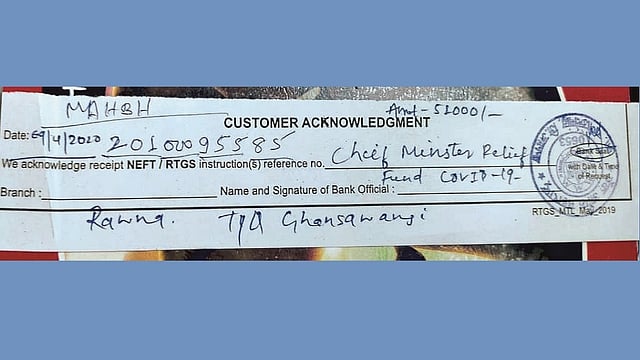 MAHBH
Amt - 51000/-
CUSTOMER ACKNOWLEDGMENT
Date: 09/4/2020 20100095585
We acknowledge receipt NEFT / RTGS instruction(s) reference no. Cheif Minster Relief
Fund COVID-19-
Bank Seal
with Date & Time
of Request
Branch : Name and Signature of Bank Official :
Rawna. T/Q Ghansawangi
RTGS_MTL_May_2019